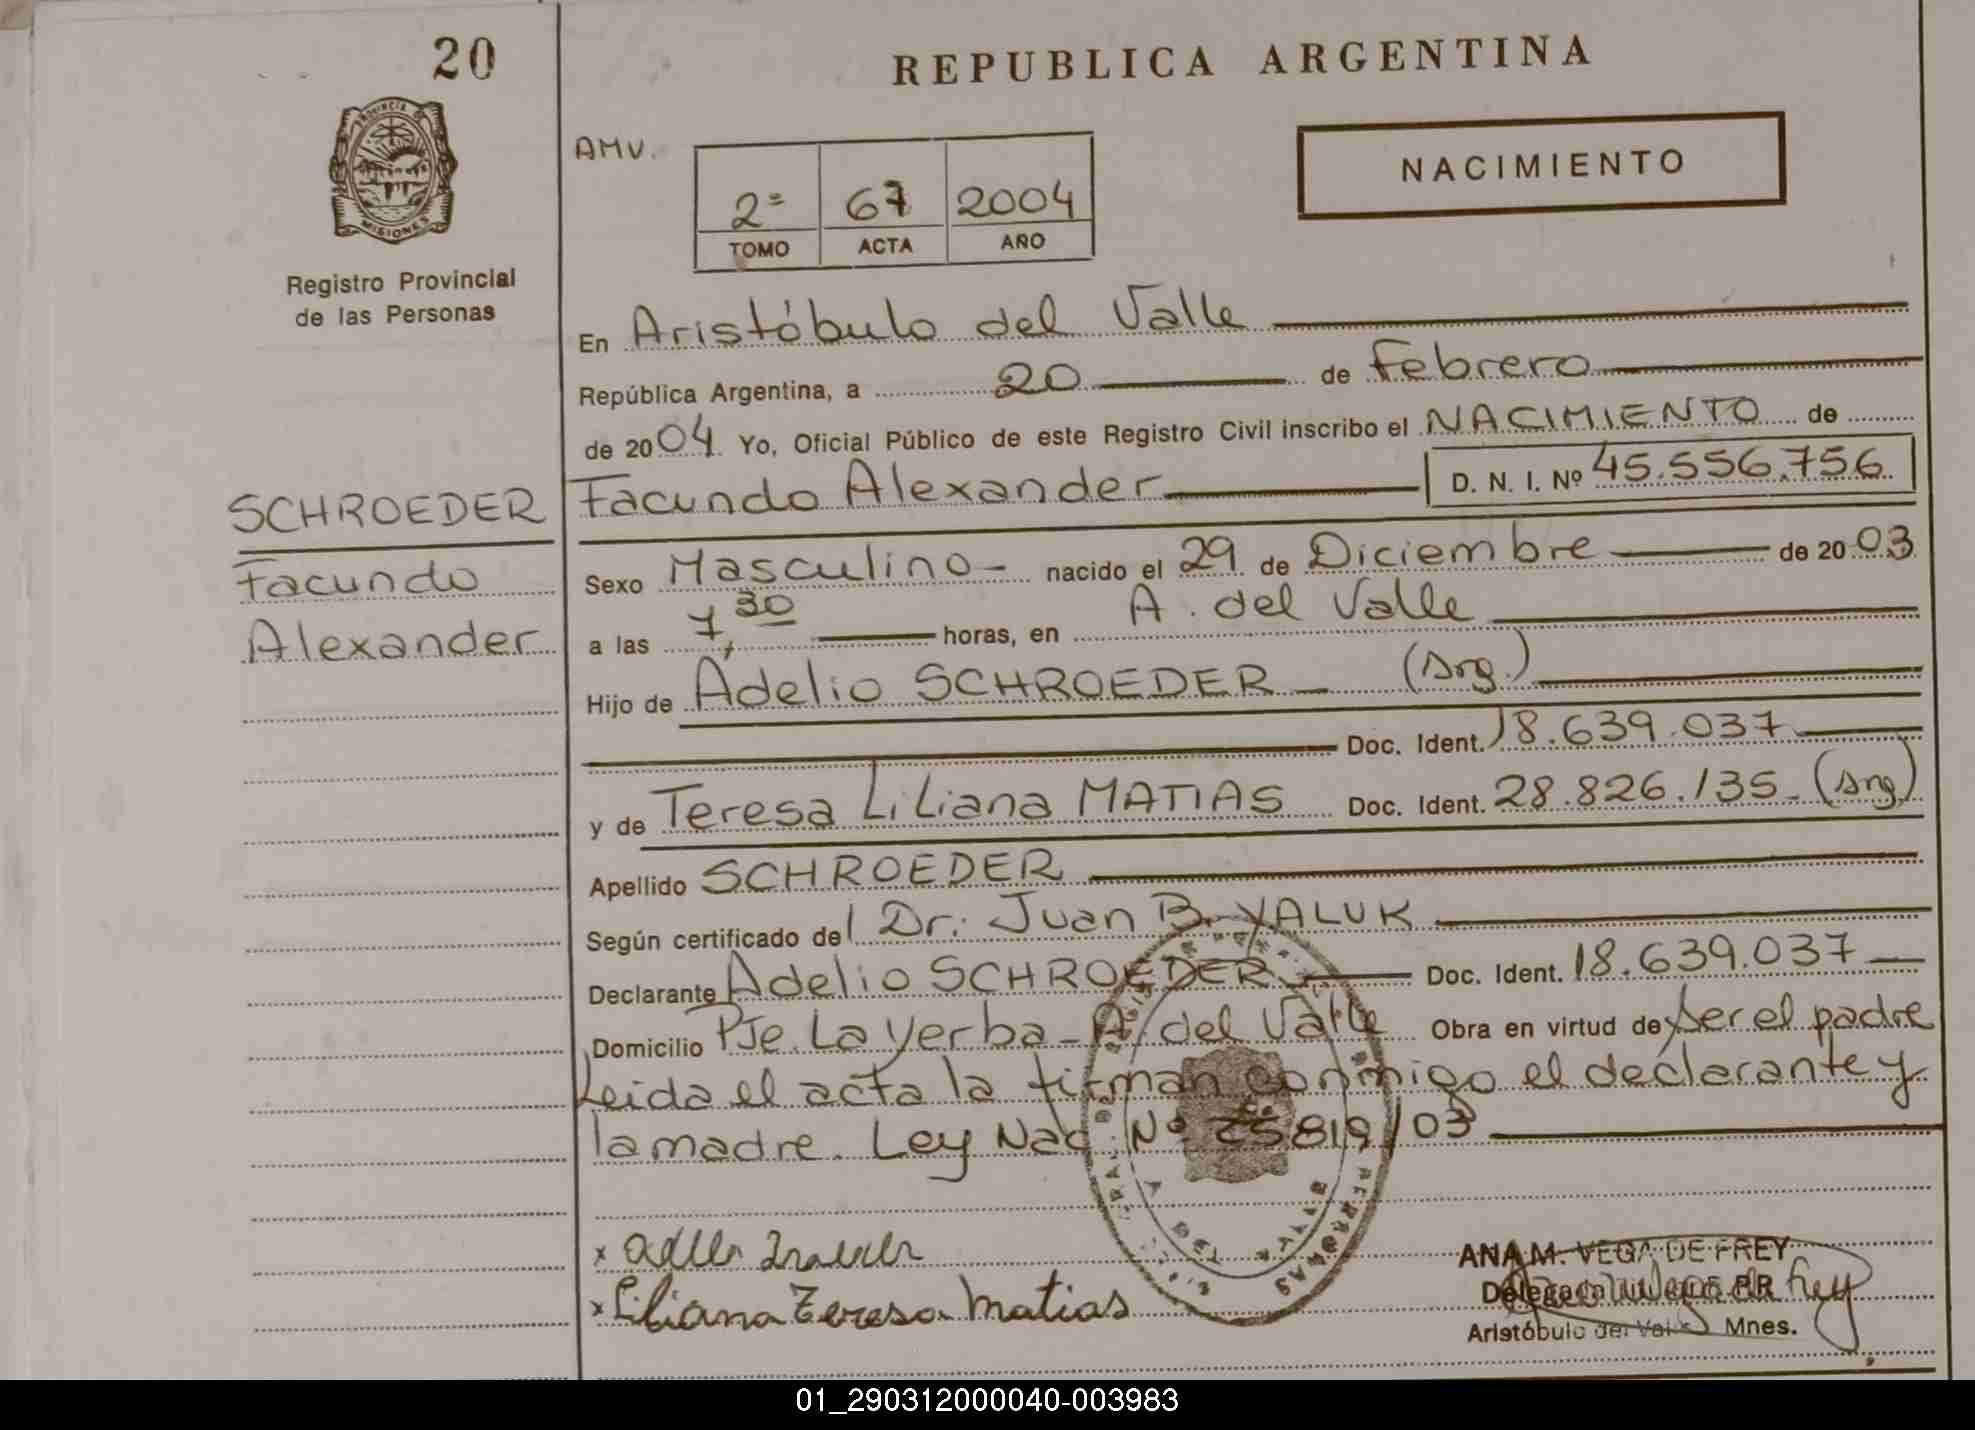 20
REPUBLICA ARGENTINA
PROVINCIA DE
MISIONES
Registro Provincial
de las Personas
AMV.
2º 67 2004
TOMO ACTA AÑO
NACIMIENTO
En Aristóbulo del Valle
República Argentina, a 20 de Febrero
de 2004 Yo, Oficial Público de este Registro Civil inscribo el NACIMIENTO de
Facundo Alexander D. N. I. Nº 45.556.756.
SCHROEDER
Facundo
Alexander
Sexo Masculino nacido el 29 de Diciembre de 2003
a las 7,30 horas, en A. del Valle
Hijo de Adelio SCHROEDER (Arg.)
Doc. Ident. 18.639.037
y de Teresa Liliana MATIAS Doc. Ident. 28.826.135 (Arg)
Apellido SCHROEDER
Según certificado del Dr: Juan B. YALUK
Declarante Adelio SCHROEDER Doc. Ident. 18.639.037
Domicilio Pje. La Yerba - A. del Valle Obra en virtud de Ser el padre
Leida el acta la firman conmigo el declarante y
la madre. Ley Nac. Nº 25819/03
x
x Liliana Teresa Matias
ANA M. VEGA DE FREY
Delegada
Aristóbulo del Valle Mnes.
01_290312000040-003983